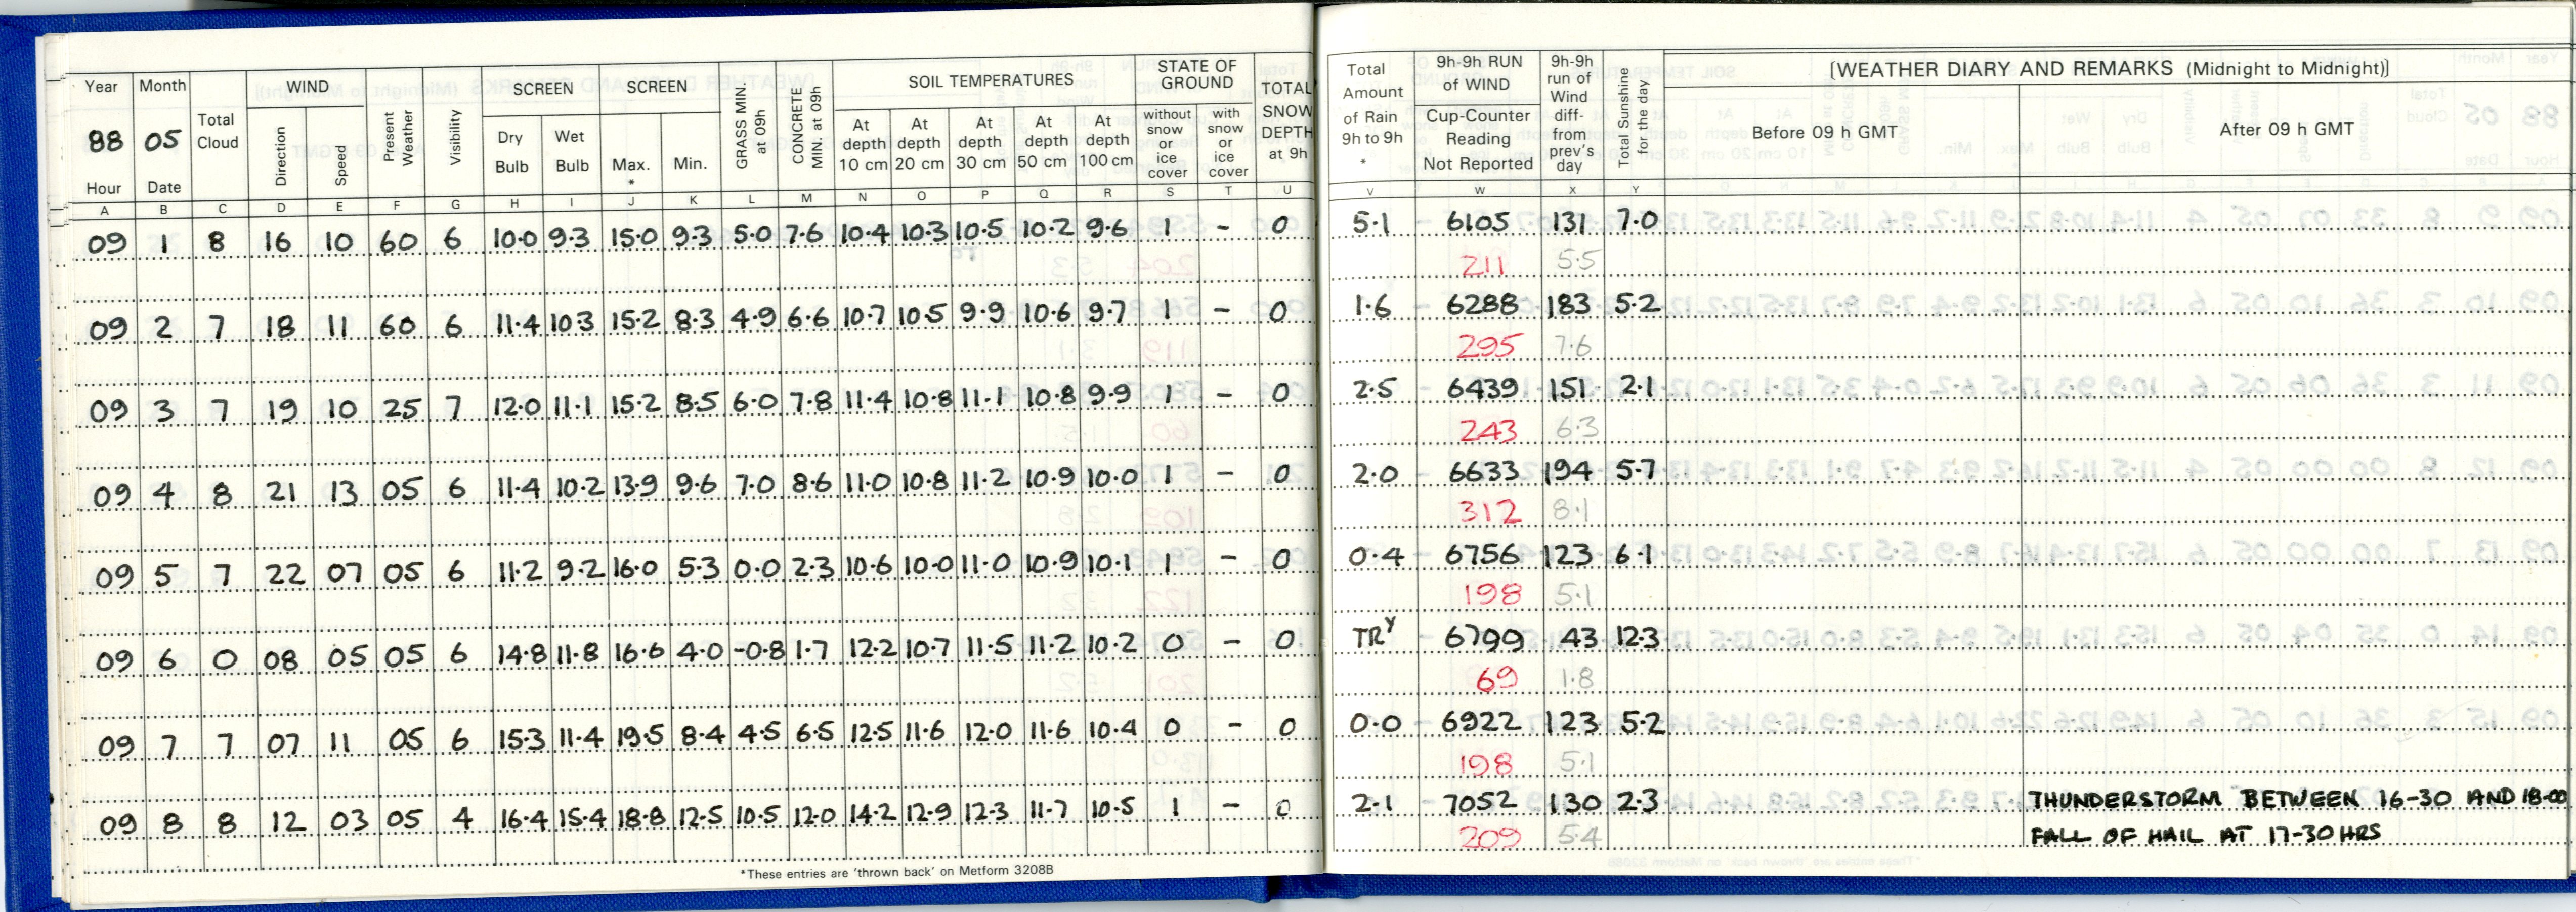 Year Month WIND SCREEN SCREEN SOIL TEMPERATURES STATE OF GROUND TOTAL SNOW DEPTH at 9h
88 05 Total Cloud Direction Speed Present Weather Visibility Dry Bulb Wet Bulb Max. * Min. GRASS MIN. at 09h CONCRETE MIN. at 09h At depth 10 cm At depth 20 cm At depth 30 cm At depth 50 cm At depth 100 cm without snow or ice cover with snow or ice cover
Hour Date
A B C D E F G H I J K L M N O P Q R S T U
09 1 8 16 10 60 6 10.0 9.3 15.0 9.3 5.0 7.6 10.4 10.3 10.5 10.2 9.6 1 - 0
09 2 7 18 11 60 6 11.4 10.3 15.2 8.3 4.9 6.6 10.7 10.5 9.9 10.6 9.7 1 - 0
09 3 7 19 10 25 7 12.0 11.1 15.2 8.5 6.0 7.8 11.4 10.8 11.1 10.8 9.9 1 - 0
09 4 8 21 13 05 6 11.4 10.2 13.9 9.6 7.0 8.6 11.0 10.8 11.2 10.9 10.0 1 - 0
09 5 7 22 07 05 6 11.2 9.2 16.0 5.3 0.0 2.3 10.6 10.0 11.0 10.9 10.1 1 - 0
09 6 0 08 05 05 6 14.8 11.8 16.6 4.0 -0.8 1.7 12.2 10.7 11.5 11.2 10.2 0 - 0
09 7 7 07 11 05 6 15.3 11.4 19.5 8.4 4.5 6.5 12.5 11.6 12.0 11.6 10.4 0 - 0
09 8 8 12 03 05 4 16.4 15.4 18.8 12.5 10.5 12.0 14.2 12.9 12.3 11.7 10.5 1 - 0
*These entries are 'thrown back' on Metform 3208B
Total Amount of Rain 9h to 9h * 9h-9h RUN of WIND Cup-Counter Reading Not Reported 9h-9h run of Wind diff- from prev's day Total Sunshine for the day [WEATHER DIARY AND REMARKS (Midnight to Midnight)]
Before 09 h GMT After 09 h GMT
V W X Y
5.1 6105 131 7.0
211 5.5
1.6 6288 183 5.2
295 7.6
2.5 6439 151 2.1
243 6.3
2.0 6633 194 5.7
312 8.1
0.4 6756 123 6.1
198 5.1
TRY 6799 43 12.3
69 1.8
0.0 6922 123 5.2
198 5.1
2.1 7052 130 2.3 THUNDERSTORM BETWEEN 16-30 AND 18-00
209 5.4 FALL OF HAIL AT 17-30 HRS